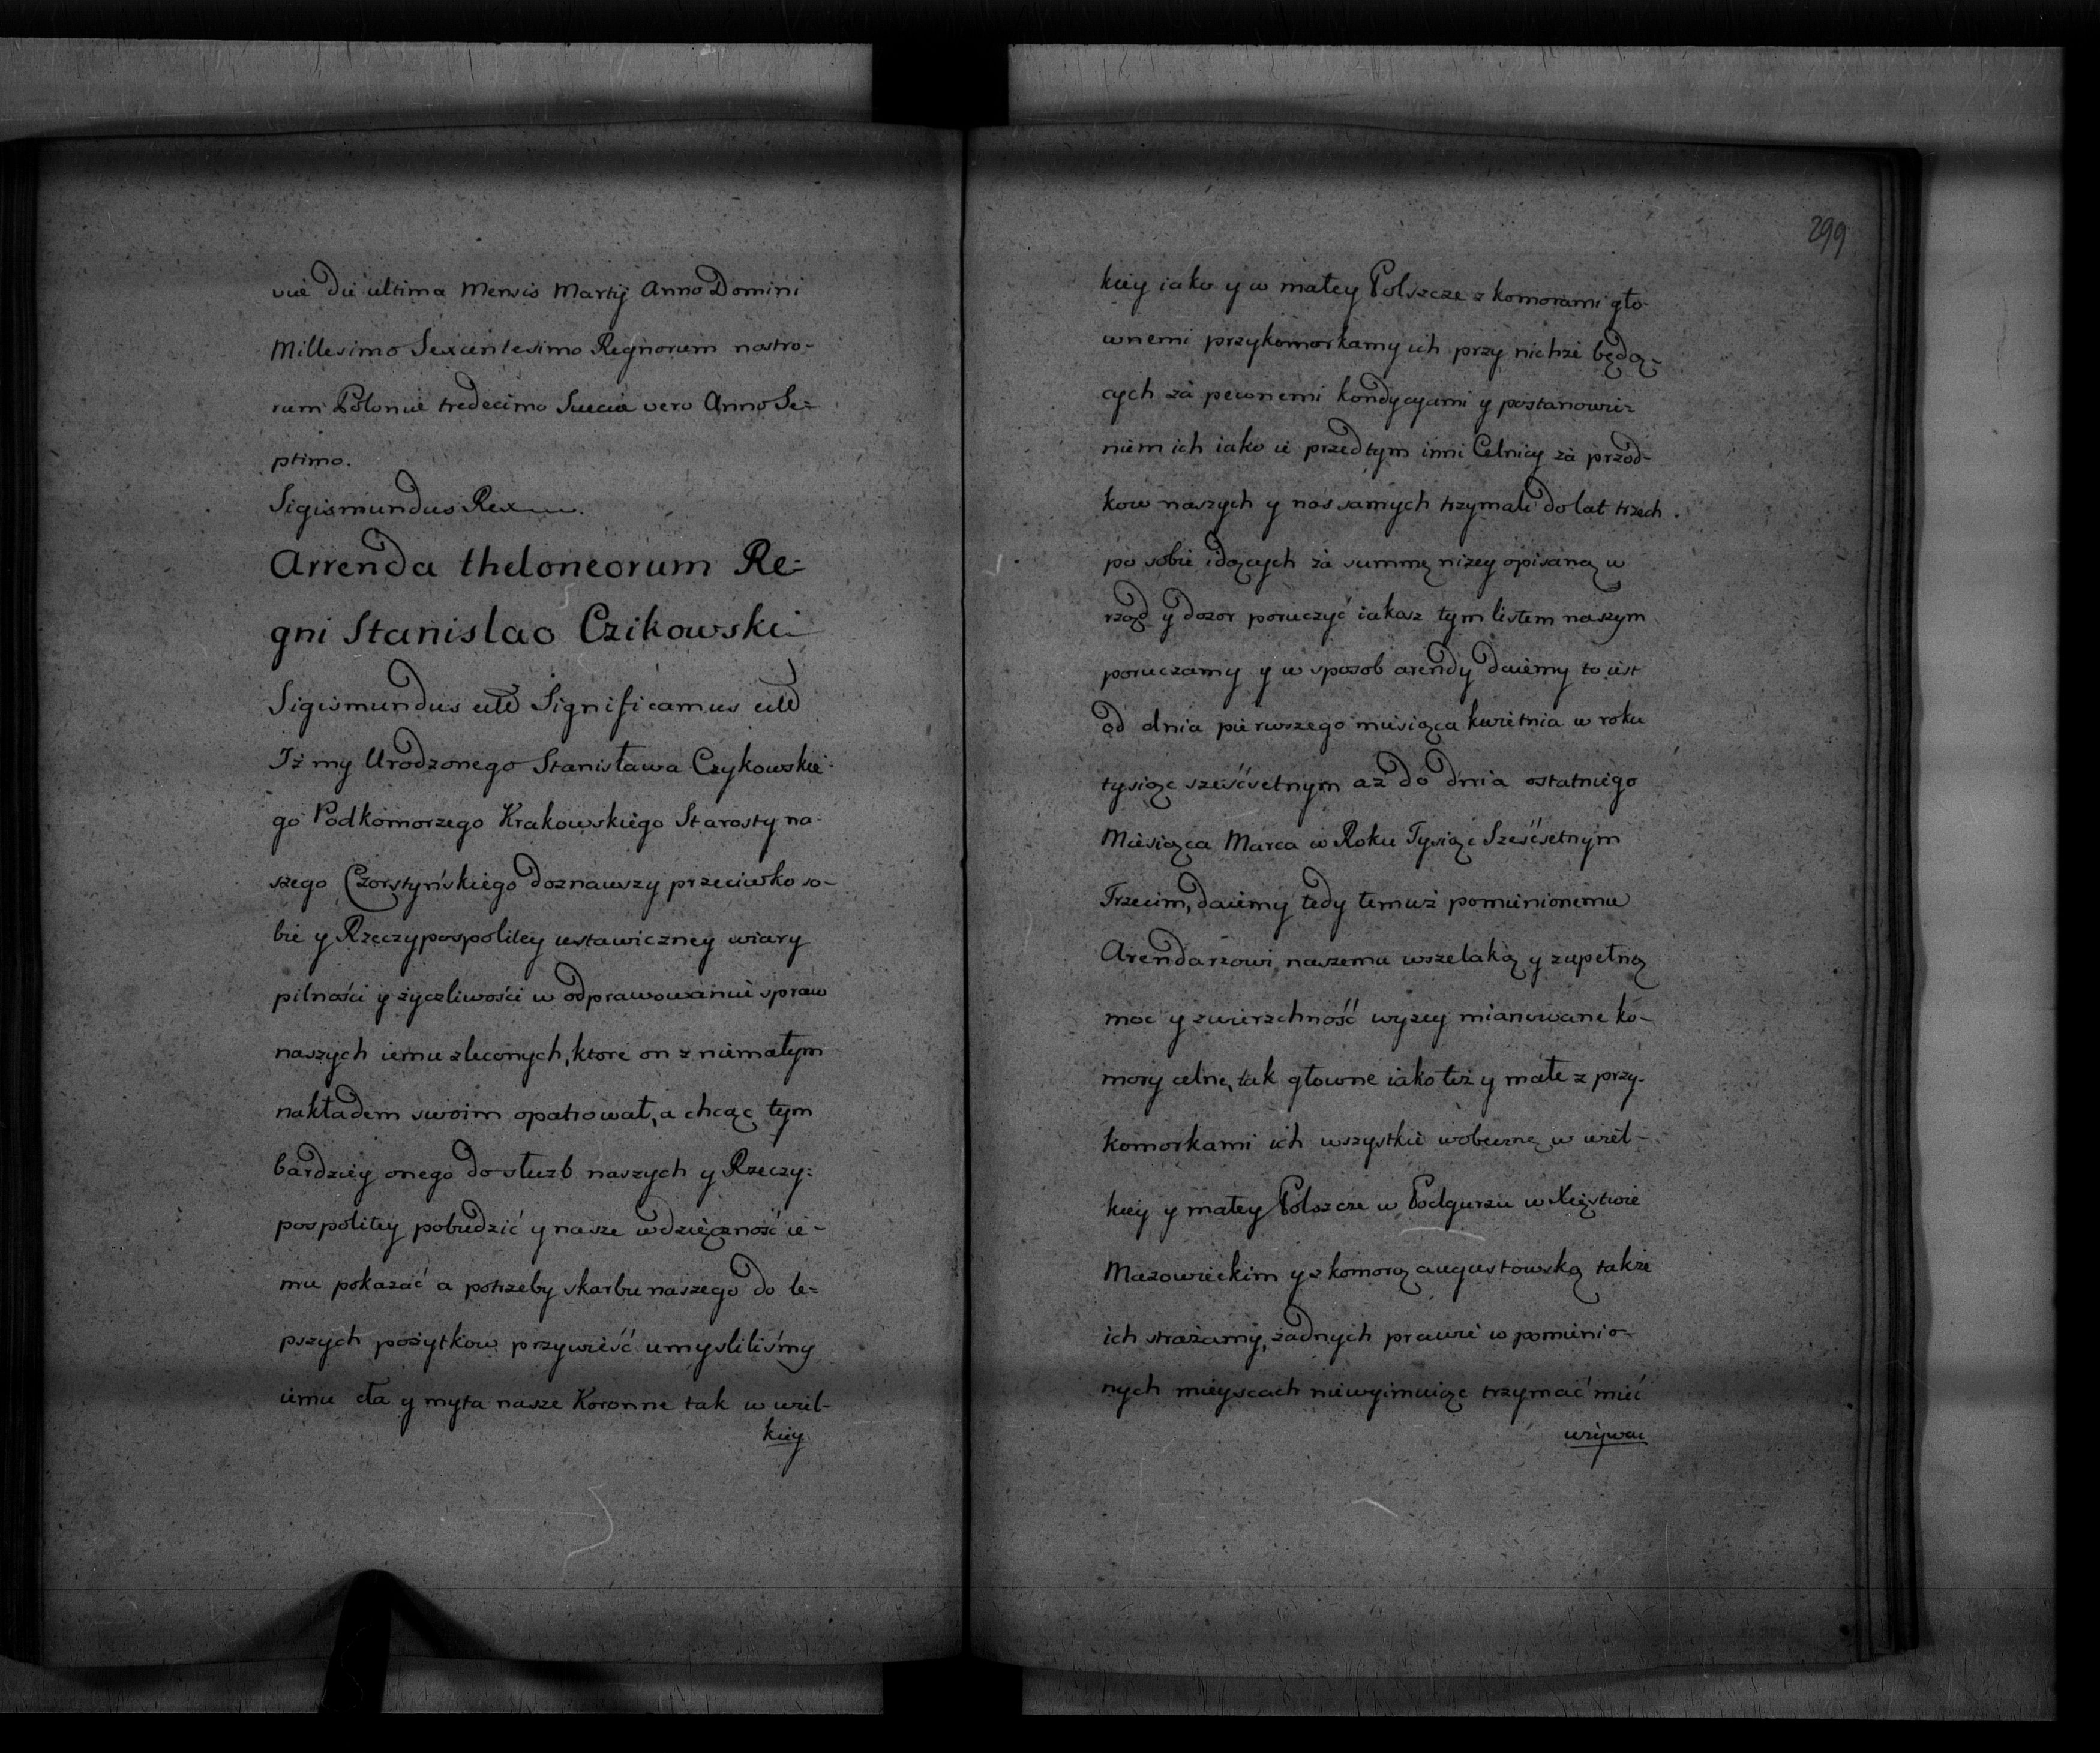 vie die ultima Mensis Martij Anno Domini
Millesimo Sexcentesimo Regnorum nostro-
rum Poloniæ tredecimo Sueciæ vero Anno Se=
ptimo.
Sigismundus Rex
Arrenda theloneorum Re=
gni Stanislao Czikowski
Sigismundus etc Significamus etc
Iż my Urodzonego Stanisława Czykowskie-
go Podkomorzego Krakowskiego Starosty na-
szego Czorstyńskiego doznawszy przeciwko so-
bie y Rzeczypospolitey ustawiczney wiary
pilności y życzliwości w odprawowaniu spraw
naszych iemu zleconych, ktore on z niemałym
nakładem swoim opatrował, a chcąc tym
bardziey onego do służb naszych y Rzeczy=
pospolitey pobudzić y nasze wdzięczność ie-
mu pokazać a potrzeby skarbu naszego do le=
pszych pożytkow przywieść umysliliśmy
iemu cła y myta nasze Koronne tak w wiel-
kiey
299
kiey iako y w małey Polszcze z komorami gło-
wnemi przykomorkamy ich przy nichże będą-
cych za pewnemi kondycyami y postanowie-
niem ich iako ie przedtym inni Celnicy za przod-
kow naszych y nas samych trzymali do lat trzech
po sobie idących za summę niżey opisaną w
rząd y dozor poruczyć iakosz tym listem naszym
poruczamy y w sposob arendy daiemy to iest
od dnia pierwszego miesiąca kwietnia w roku
tysiąc sześćsetnym az do dnia ostatniego
Miesiąca Marca w Roku Tysiąc Sześćsetnym
Trzecim, daiemy tedy temuż pomienionemu
Arendarzowi naszemu wszelaką y zupełną
moc y zwierzchność wyzey mianowane ko-
mory celne, tak głowne iako też y małe z przy-
komorkami ich wszystkie wobecne w wiel-
kiey y małey Polszcze w Podgurzu w Xięstwie
Mazowieckim y z komorą augustowską takze
ich strażamy, żadnych prawie w pomienio-
nych mieyscach niewyimuiąc trzymać mieć